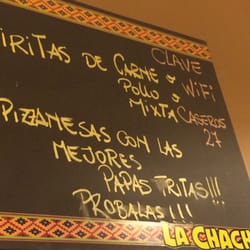 IRITAS DE CARNE o
POLLO o
MIXTA
CLAVE
WiFi
CASEROS
27
PIZZANESAS CON LAS
MEJORES
PAPAS FRITAS!!!
PROBALAS!!!
LA CHAC